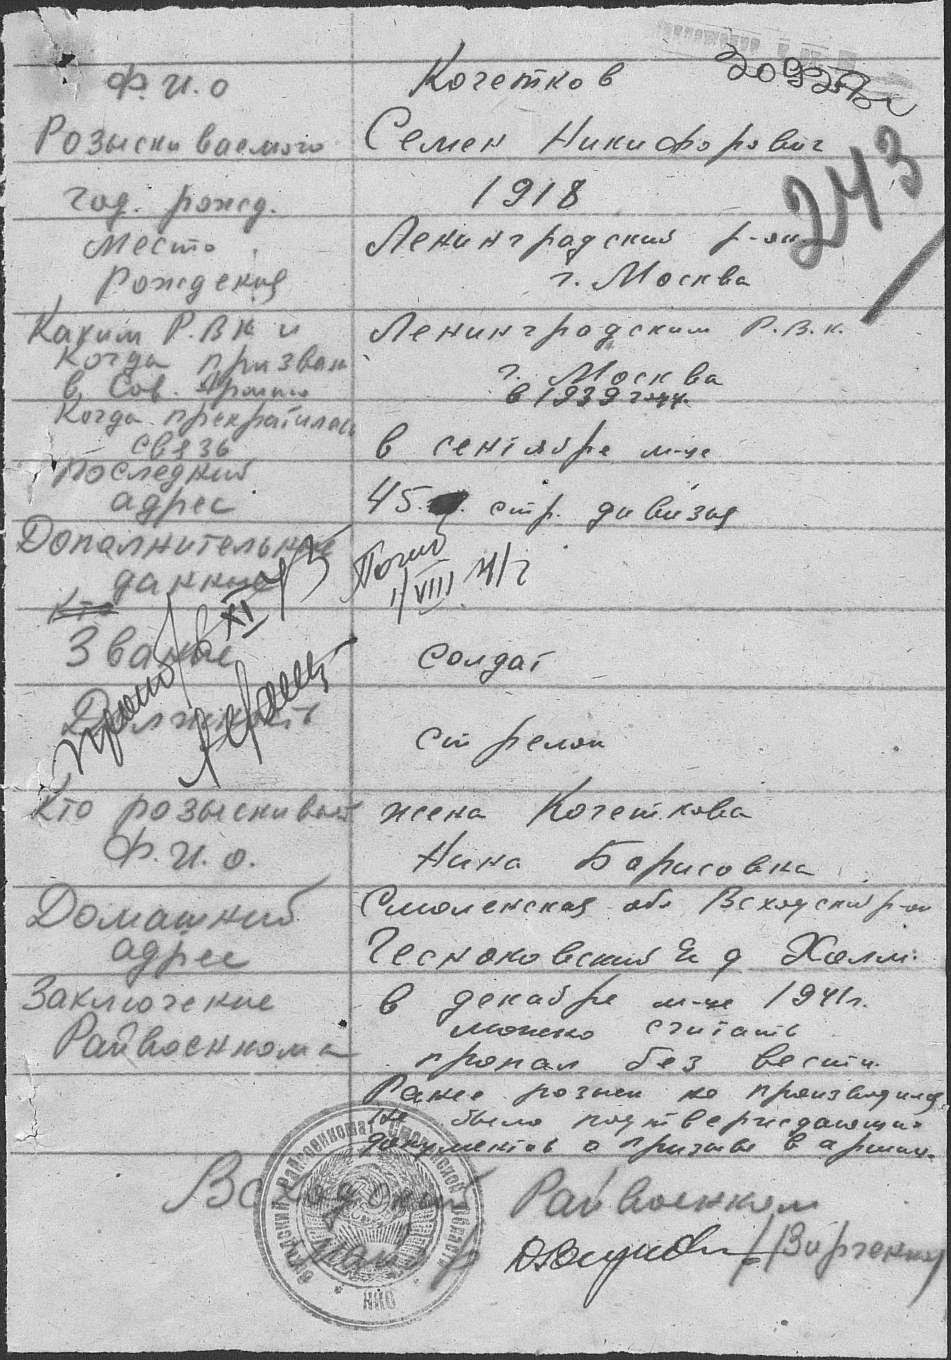 Ф.И.О Кочетков
Розыскиваемого Семен Никифорович
243
год. рожд. 1918
Место Ленинградский р-он
Рождения г. Москва
Каким Р.В.К и Ленинградским Р.В.К.
Когда призван г. Москва
в Сов. Армию в 1939 году.
Когда прекратилась
связь в сентябре м-це
Последний
адрес 45. стр. дивизия
Дополнительные Погиб
данные 1/VIII 41 г
Кто
XI
Звание солдат
Должность
стрелок
Кто розыскивает жена Кочеткова
Ф.И.О. Нина Борисовна
Домашний Смоленская обл Всходский р-он
адрес Чесноковский д Холм.
Заключение в декабре м-це 1941г.
Райвоенкома можно считать
пропал без вести.
Ранее розыск не производился,
не было подтверждающих
документов о призыве в армию.
Всходский Райвоенком
майор
Всходский Райвоенкомат Смоленской области
НКО